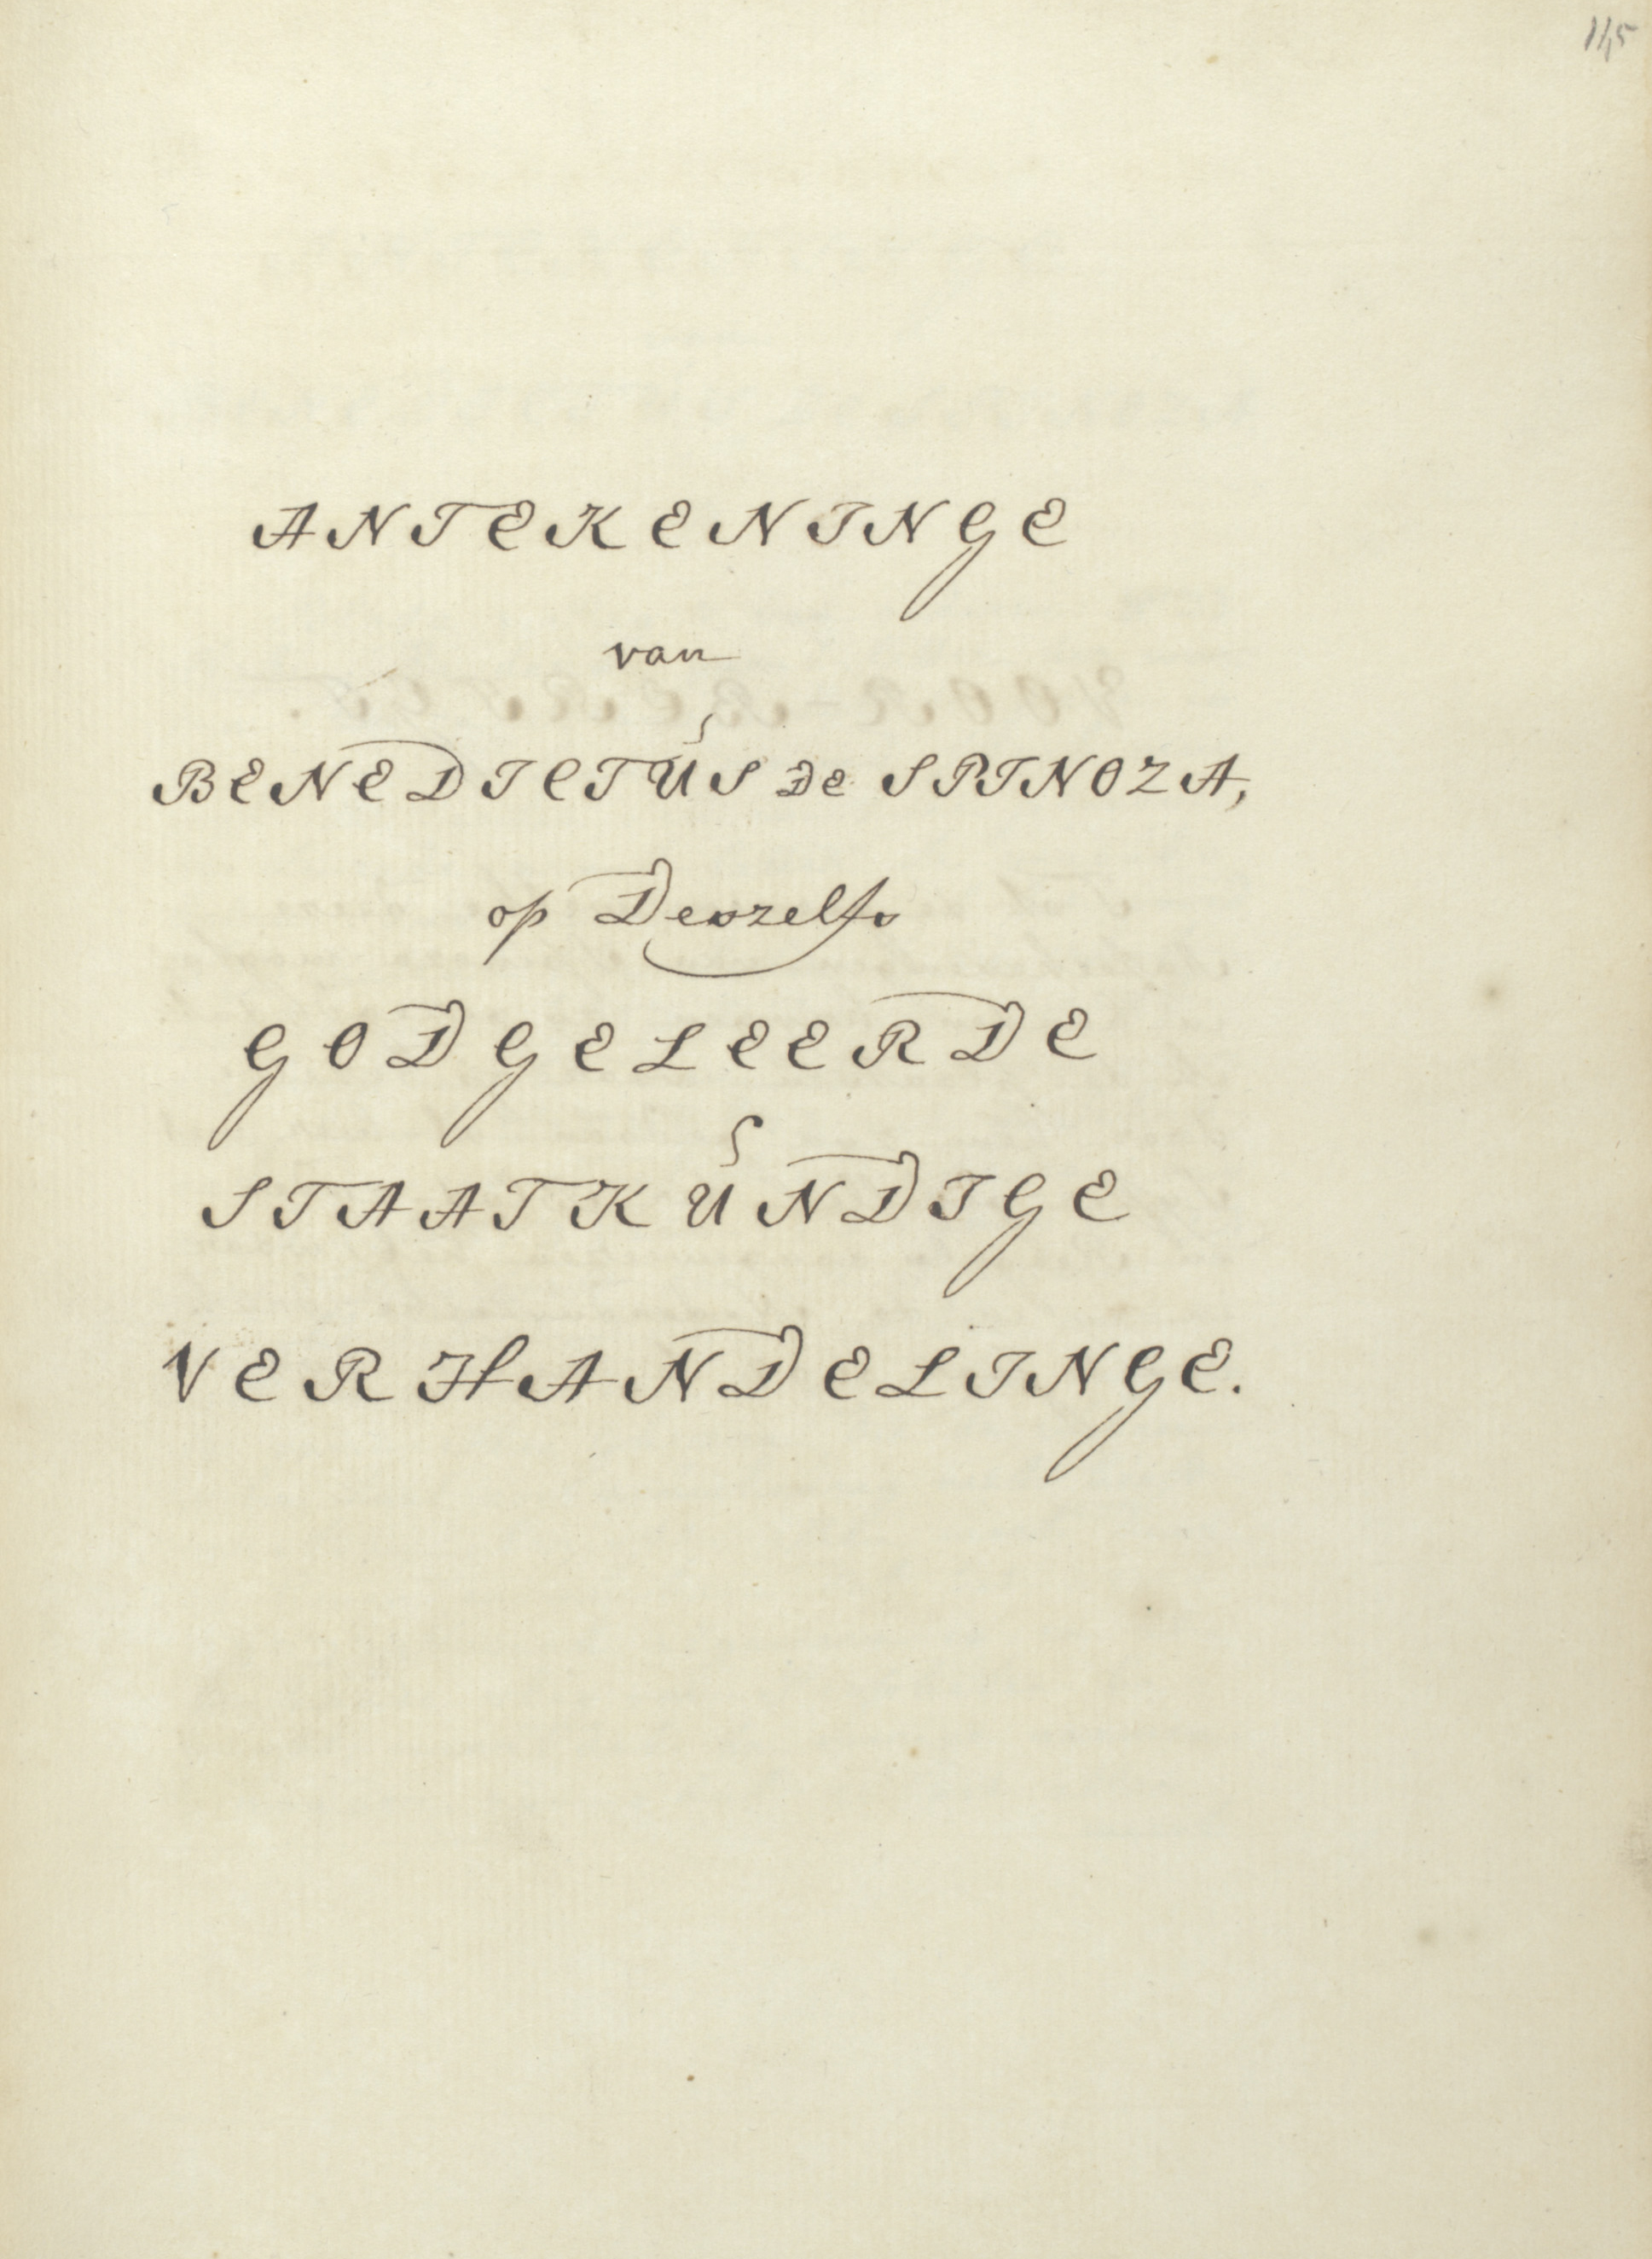 145
ANTEKENINGE
van
BENEDICTUS de SPINOZA,
op Deszelfs
GODGELEERDE
STAATKUNDIGE
VERHANDELINGE.